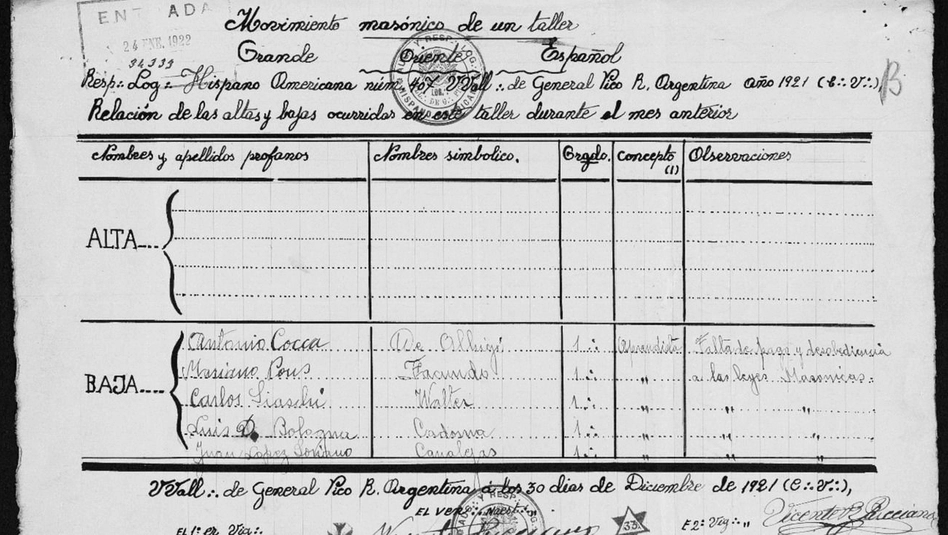 ENTRADA
24 ENE. 1922
34333
Movimiento masónico de un taller
Grande Oriente Español
Resp∴ Log∴ Hispano Americana núm. 407 VVall∴ de General Pico R. Argentina año 1921 (E∴V∴)
Relación de las altas y bajas ocurridas en este taller durante el mes anterior
Nombres y apellidos profanos Nombres simbolico. Grado. Concepto (1) Observaciones
ALTA
BAJA
Antonio Cocca 1∴ Aprendiz Falta de pago y desobediencia
Mariano Pous Facundo 1∴ " a las leyes Masonicas.
Carlos Walter 1∴ " " "
Luis D. Bologna Cadorna 1∴ " " "
Juan Lopez Soriano Canalejas 1∴ " " "
VVall∴ de General Pico R. Argentina a los 30 dias de Diciembre de 1921 (E∴V∴),
EL VEN∴ MAEST∴
EL 1∴ER VIG∴ 33 E 2∴ VIG∴ "
Vicente B.